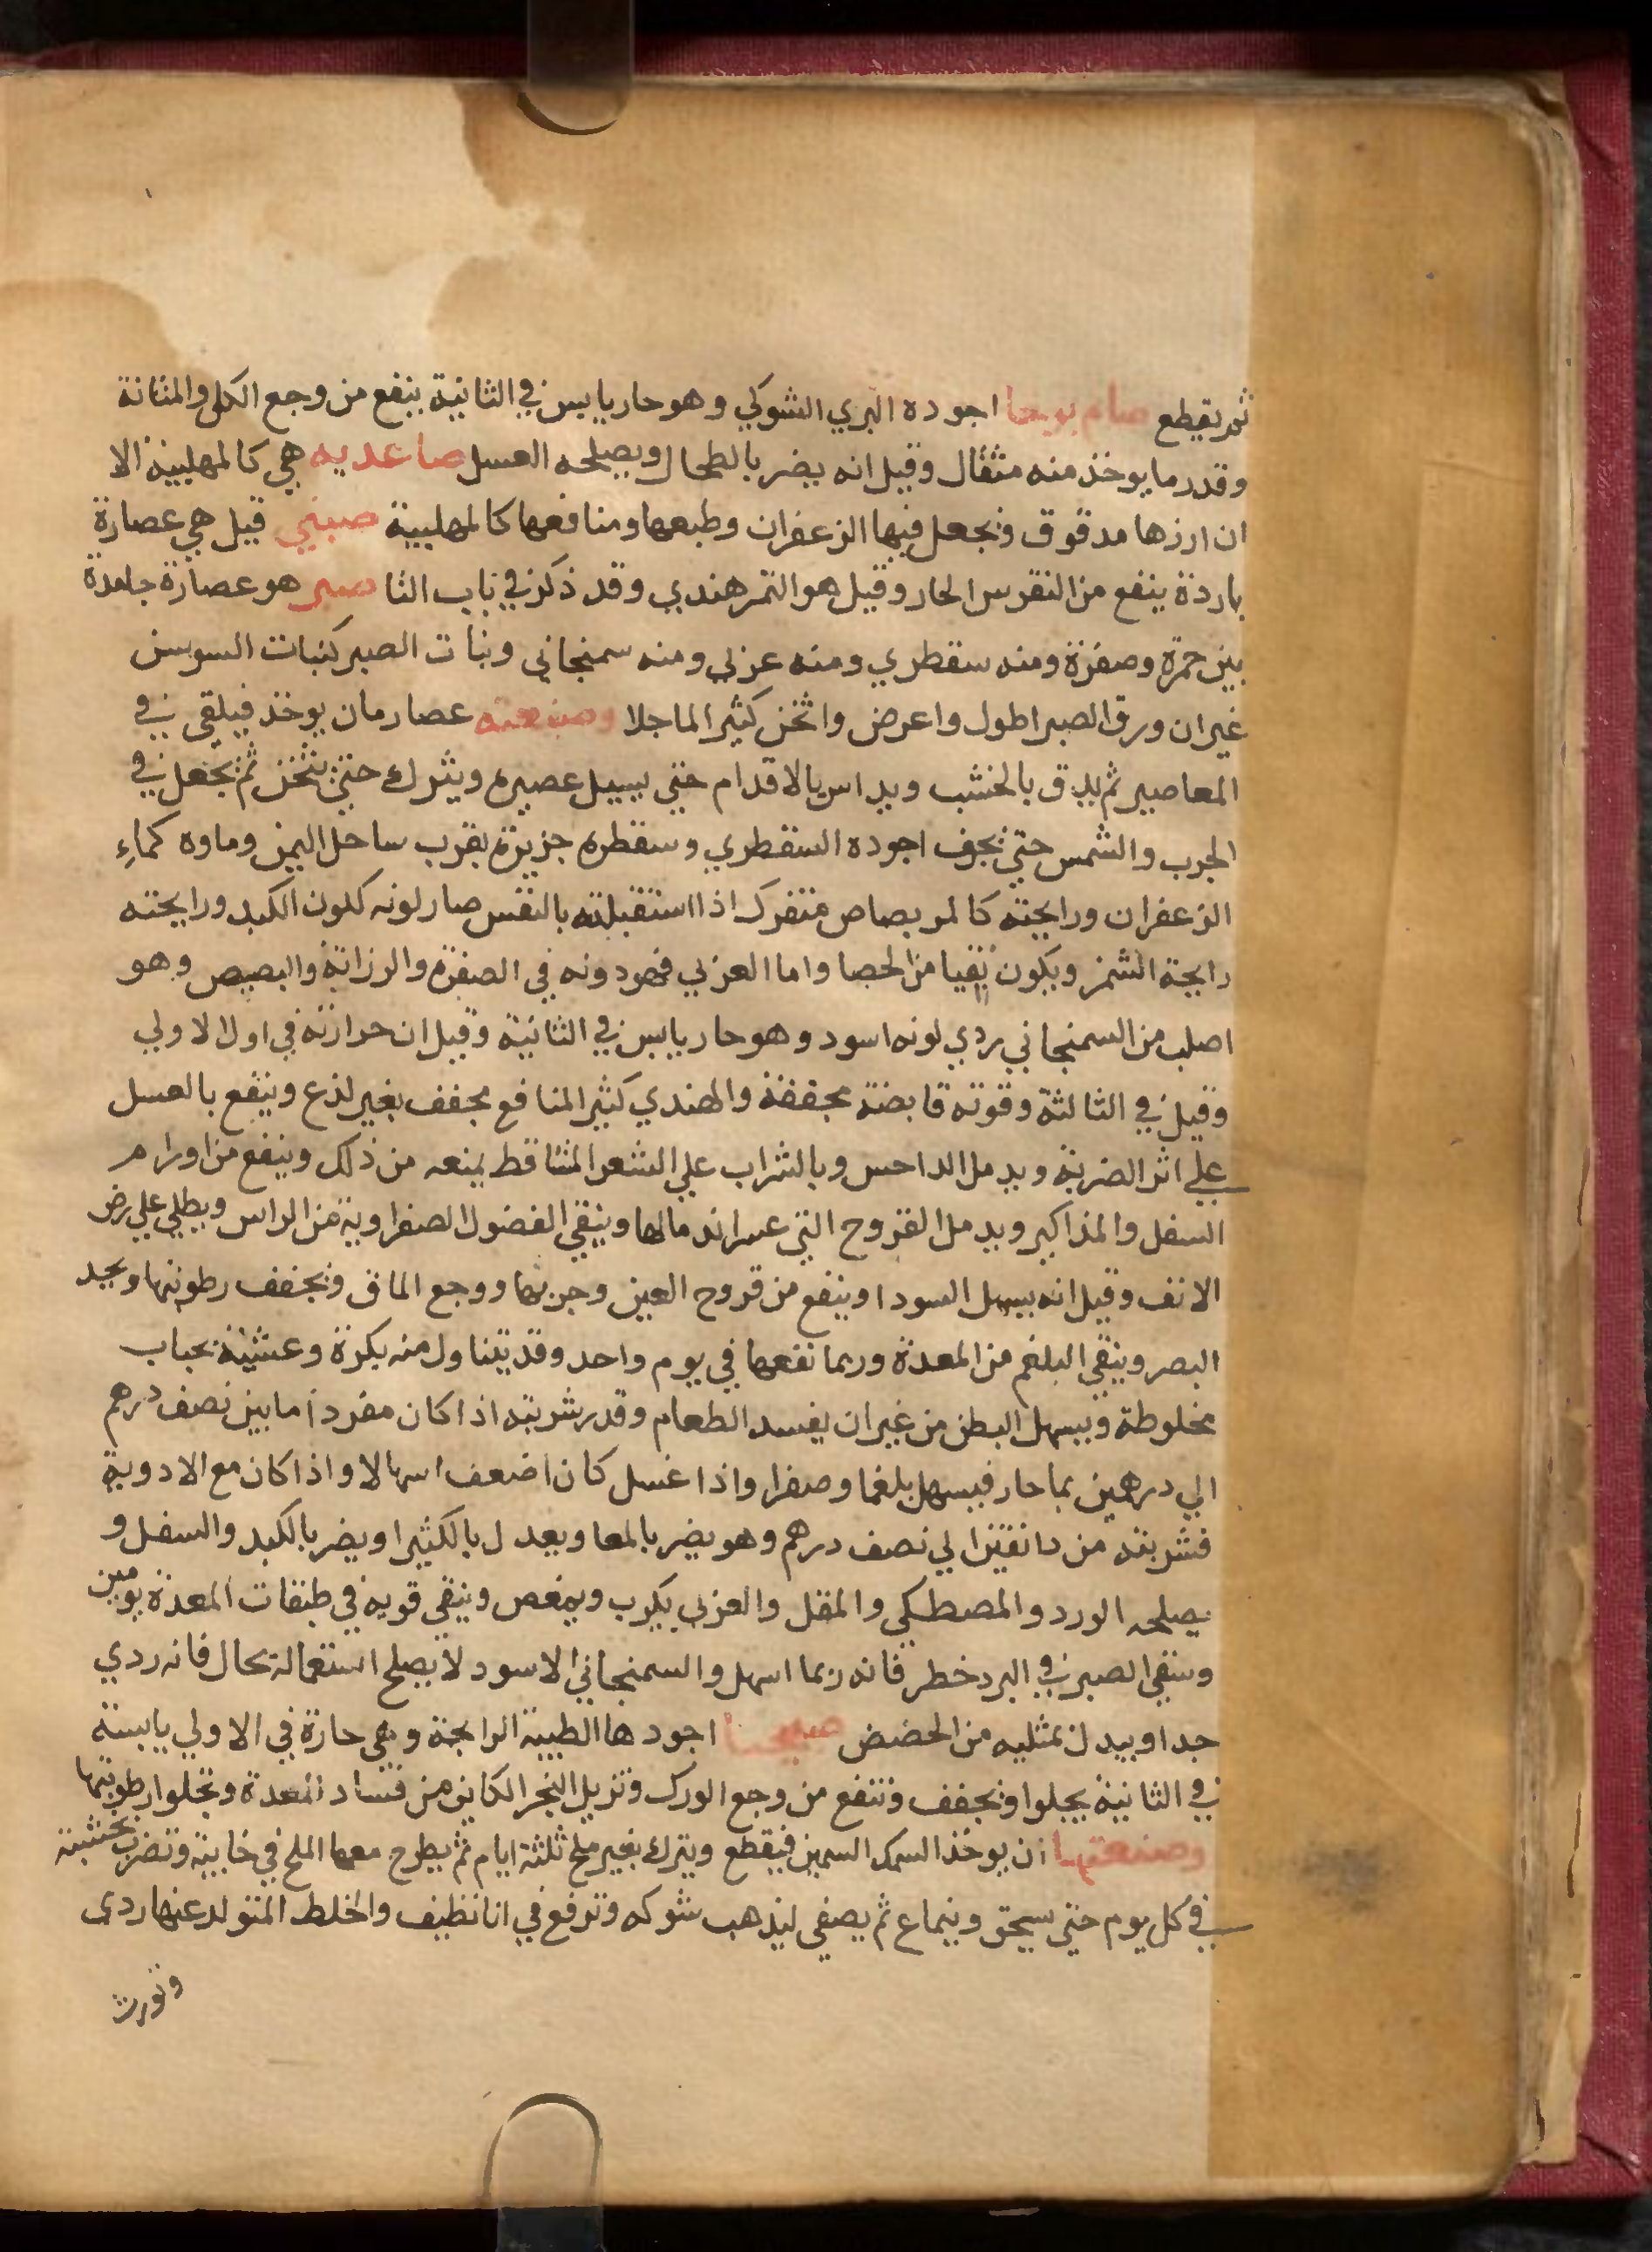 ثم يقطع صام يوحا اجوده البري الشوكي وهو حار يابس في الثانية ينفع من وجع الكلي والمثانة
وقدر ما يوخذ منه مثقال وقيل انه يضر بالطحال ويصلحه العسل صاعديه هي كالمهلبية الا
ان ارزها مدقوق ويجعل فيها الزعفران وطبعها ومنافعها كالمهلبية صبغي قيل هي عصارة
باردة ينفع من النقرس الحار وقيل هو التمر هندي وقد ذكر في باب التا صبر هو عصارة جامدة
بين حمرة وصفرة ومنه سقطري ومنه عربي ومنه سمنجاني ونبات الصبر كنبات السوسن
غير ان ورق الصبر اطول واعرض واثخن كثير الما جلا وصنعته عصار مان يوخذ فيلقي في
المعاصير ثم يدق بالخشب ويداس بالاقدام حتي يسيل عصيره ويترك حتي يثخن ثم يجعل في
الجرب والشمس حتي يجف اجوده السقطري وسقطره جزيرة بقرب ساحل اليمن وماوه كماءِ
الزعفران ورايحته كالمر بصاص متفرك اذا استقبلته بالنفس صار لونه كلون الكبد ورايحته
رايحة الشمر ويكون نقيا من الحصا واما العربي فهو دونه في الصفرة والرزانة والبصيص وهو
اصلب من السمنجاني ردي لونه اسود وهو حار يابس في الثانية وقيل ان حرارته في اول الاولي
وقيل في الثالثة وقوته قابضة مجففة والهندي كثير المنافع مجفف بغير لذع وينفع بالعسل
علي اثر الضربة ويدمل الداحس وبالشراب علي الشعر المتساقط يمنعه من ذلك وينفع من اورام
السفل والمذاكير ويدمل القروح التي عسر اندمالها وينقي الفضول الصفراوية من الراس ويطلي علي رض
الانف وقيل انه يسهل السودا وينفع من قروح العين وجربها ووجع الماق ويجفف رطوبتها ويحد
البصر وينقي البلغم من المعدة وربما نفعها في يوم واحد وقد يتناول منه بكرة وعشية بحباب
مخلوطة ويسهل البطن من غير ان يفسد الطعام وقدر شربته اذا كان مفردا ما بين نصف درهم
الي درهمين بما حار فيسهل بلغما وصفرا واذا غسل كان اضعف اسهالا واذا كان مع الادوية
فشربته من دانقين الي نصف درهم وهو يضر بالمعا ويعدل بالكثيرا ويضر بالكبد والسفل و
يصلحه الورد والمصطكي والمقل والعربي يكرب ويمغص وينقي قويه في طبقات المعدة يومين
وسقي الصبر في البرد خطر فانه ربما اسهل والسمنجاني الاسود لا يصلح استعماله بحال فانه ردي
جدا ويبدل بمثليه من الحضض صحنا اجودها الطيبة الرايحة وهي حارة في الاولي يابسة
في الثانية يجلوا ويجفف وتنفع من وجع الورك وتزيل البخر الكاين من فساد المعدة وتجلوا رطوبتها
وصنعتها ان يوخذ السمك السمين فيقطع ويترك بغير ملح ثلثة ايام ثم يطرح معها الملح في خابية وتضرب بخشبة
في كل يوم حتي سحق وينماع ثم يصفي ليذهب شوكه وترفع في انا نظيف والخلط المتولد عنها ردي
وتورث